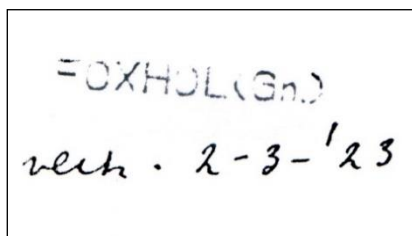 FOXHOL (Gn.)
verk. 2-3-'23